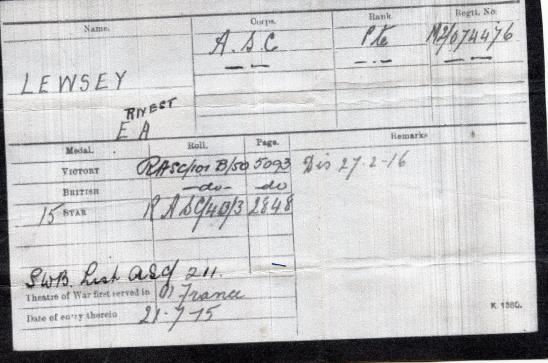 Name. Corps. Rank. Regtl. No.
A.S.C Pte M2/074476
LEWSEY
E A
Medal. Roll. Page. Remarks
VICTORY RASC/101 B/50 5093 Dis 27-2-16
BRITISH -do- do
15 STAR R ASC/4B/3 2848
SWB. List ASC/ 211.
Theatre of War first served in (1) France
Date of entry therein 21-7-15
K. 1380.